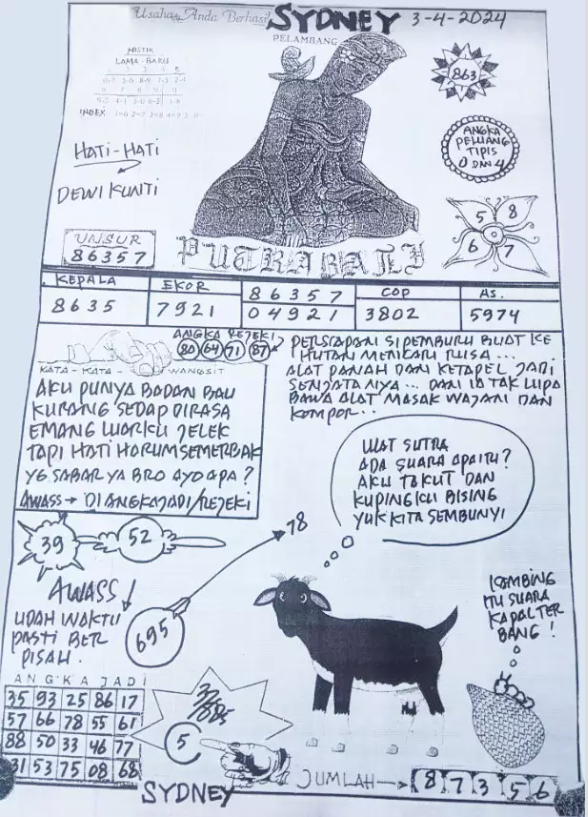 Usaha Anda Berhasil SYDNEY 3-4-2024
PELAMBANG
MISTIK
LAMA - BARU
INDEX
863
HATI-HATI
DEWI KUNTI
ANGKA
PELUANG
TIPIS
0 DAN 4
5 8
6 7
UNSUR
86357
PUTRA BALI
KEPALA EKOR 86357 COP AS.
8635 7921 04921 3802 5974
ANGKA REJEKI
80 64 71 87
KATA - KATA - WANGSIT
AKU PUNYA BADAN BAU
KURANG SEDAP DIRASA
EMANG LUARKU JELEK
TAPI HATI HARUM SEMERBAK
YG SABAR YA BRO AYO APA ?
AWASS → DI ANGKA JADI/REJEKI
PERSIAPAN SI PEMBURU BUAT KE
HUTAN MENCARI RUSA ...
ALAT PANAH DAN KETAPEL JADI
SENJATA NYA ... DAN IA TAK LUPA
BAWA ALAT MASAK WAJAN DAN
KOMPOR...
ULAT SUTRA
ADA SUARA APA ITU ?
AKU TAKUT DAN
KUPINGKU BISING
YUK KITA SEMBUNYI
39 52
78
AWASS !
UDAH WAKTU
PASTI BER
PISAH.
695
KAMBING
ITU SUARA
KAPAL TER
BANG !
ANGKA JADI
35 93 25 86 17
57 66 78 55 61
88 50 33 46 77
31 53 75 08 68
5
JUMLAH → 8 7 3 5 6
SYDNEY